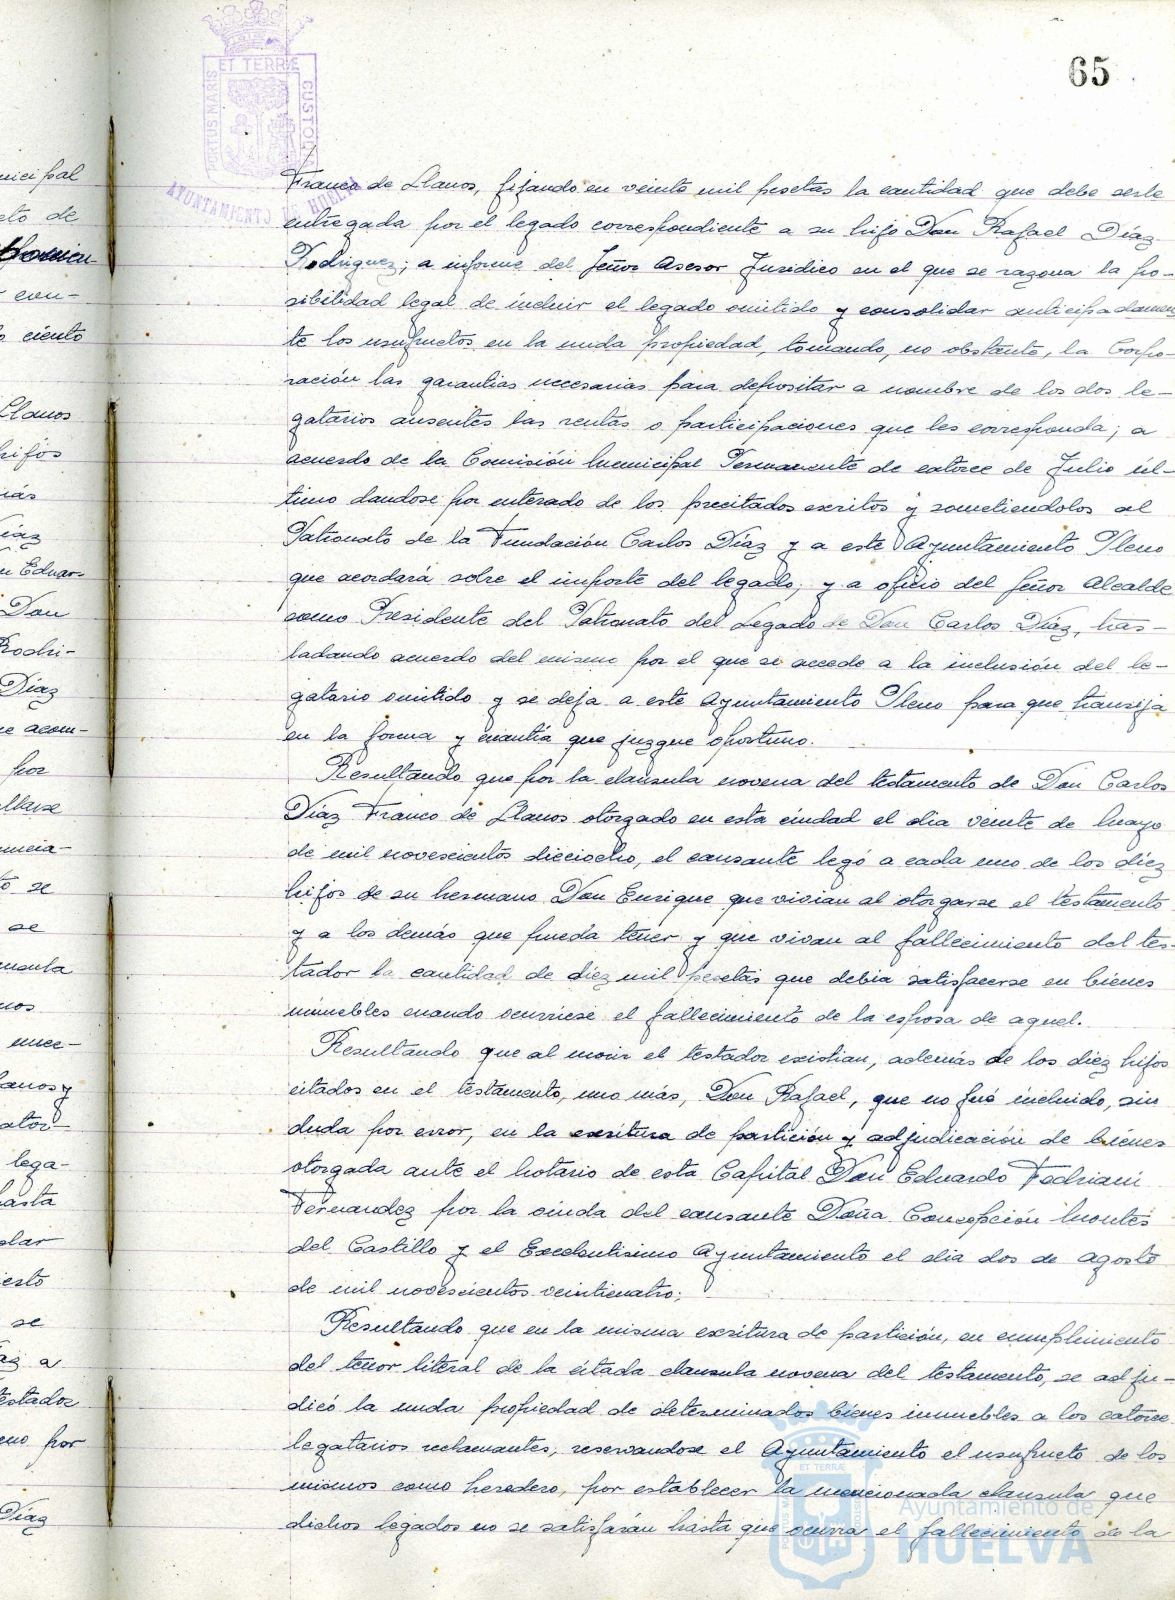 65
PORTUS MARIS ET TERRÆ CUSTODIA
AYUNTAMIENTO DE HUELVA
nicipal
eto de
con-
ciento
Llanos
hijos
más
Díaz
n Eduar-
Don
Rodri-
Díaz
e acom-
por
llarse
uncia-
to se
se
nos
nece-
lanos y
ator-
lega-
hasta
olar
iesto
se
az a
testador
eno por
Díaz
Franco de Llanos, fijando en veinte mil pesetas la cantidad que debe serle
entregada por el legado correspondiente a su hijo Don Rafael Díaz
Rodriguez; a informe del Señor Asesor Jurídico en el que se razona la po-
sibilidad legal de incluir el legado omitido y consolidar anticipadamen-
te los usufructos en la nuda propiedad, tomando, no obstante, la Corpo-
ración las garantias necesarias para depositar a nombre de los dos le-
gatarios ausentes las rentas o participaciones que les corresponda; a
acuerdo de la Comisión Municipal Permanente de catorce de Julio úl-
timo dandose por enterado de los precitados escritos y sometiendolos al
Patronato de la Fundación Carlos Díaz y a este Ayuntamiento Pleno
que acordará sobre el importe del legado; y a oficio del Señor Alcalde
como Presidente del Patronato del Legado de Don Carlos Díaz, tras-
ladando acuerdo del mismo por el que se accede a la inclusión del le-
gatario omitido y se deja a este Ayuntamiento Pleno para que transija
en la forma y cuantía que juzgue oportuno.
Resultando que por la clausula novena del testamento de Don Carlos
Díaz Franco de Llanos otorgado en esta ciudad el dia veinte de Mayo
de mil novescientos dieciocho, el causante legó a cada uno de los diez
hijos de su hermano Don Enrique que vivian al otorgarse el testamento
y a los demás que pueda tener y que vivan al fallecimiento del tes-
tador la cantidad de diez mil pesetas que debia satisfacerse en bienes
inmuebles cuando ocurriese el fallecimiento de la esposa de aquel.
Resultando que al morir el testador existian, además de los diez hijos
citados en el testamento, uno más, Don Rafael, que no fué incluido, sin
duda por error, en la escritura de partición y adjudicación de bienes
otorgada ante el Notario de esta Capital Don Eduardo Fedriani
Fernandez por la viuda del causante Doña Concepción Montes
del Castillo y el Excelentisimo Ayuntamiento el dia dos de agosto
de mil novescientos veinticuatro;
Resultando que en la misma escritura de partición, en cumplimiento
del tenor literal de la citada clausula novena del testamento, se adju-
dicó la nuda propiedad de determinados bienes inmuebles a los catorce
legatarios reclamantes, reservandose el Ayuntamiento el usufructo de los
mismos como heredero, por establecer la mencionada clausula que
dichos legados no se satisfarán hasta que ocurra el fallecimiento de la
Ayuntamiento de
HUELVA